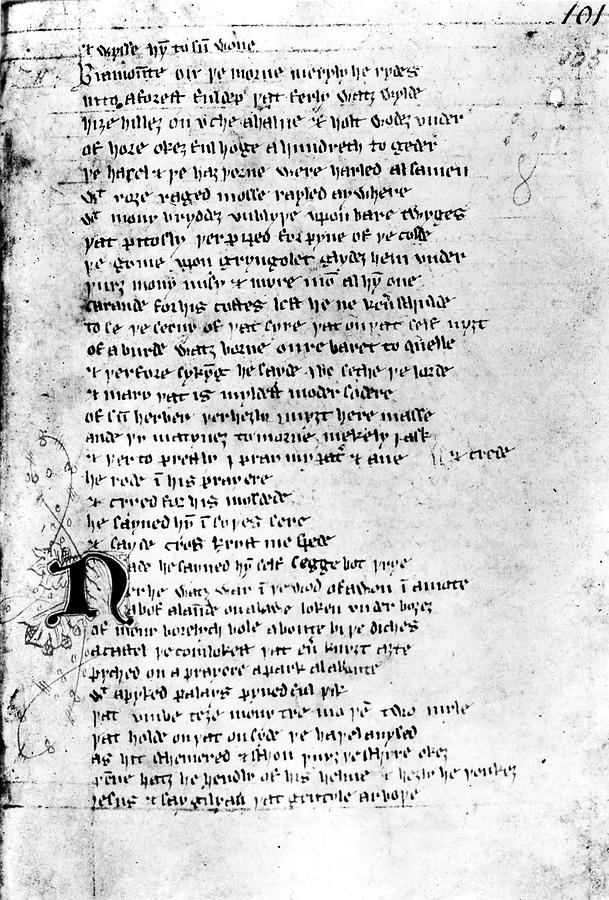 101
105
& wysse hȳ to sū wone
Bi a mounte on þe morne meryly he rydes
in to a forest ful dep þat ferly watz wylde
hiȝe hillez on vche a halue & holt wodez vnder
of hore okez ful hoge a hundreth to geder
þe hasel & þe haȝ þorne were harled al samen
wt roȝe raged mosse rayled ay where
wt mony bryddez vnblyþe vpon bare twyges
þat pitosly þer piped for pyne of þe colde
þe gome vpon gryngolet glydez hem vnder
þurȝ mony misy & myre mon al hȳ one
carande for his costes lest he ne keu̾ schulde
to se þe seruy of þat syre þat on þat self nyȝt
of a burde watz borne oure baret to quelle
& þerfore sykȳg he sayde I be seche þe lorde
& mary þat is myldest moder so dere
of sū herber þer heȝly I myȝt here masse
ande þy matynez to morne mekely I ask
& þer to prestly I pray my pat̾ & aue & crede
he rode ī his prayere
& cryed for his mysdede
he sayned hȳ ī syþes sere
& sayde cros kryst me spede
Nade he sayned hȳ self segge bot þrye
er he watz war ī þe wod of a won ī a mote
abof a laūde on a lawe loken vnder boȝez
of mony borelych bole aboute bi þe diches
a castel þe comlokest þat eu̾ knyȝt aȝte
pyched on a prayere a park al aboute
wt a pyked palays pyned ful þik
þat vmbe teȝe mony tre mo þen two myle
þat holde on þat on syde þe haþel auysed
as hit schemered & schon þurȝ þe schyre okez
þēne hatz he hendly of his helme & heȝly he þonkez
iesus & say gilyan þat gentyle ar boþe